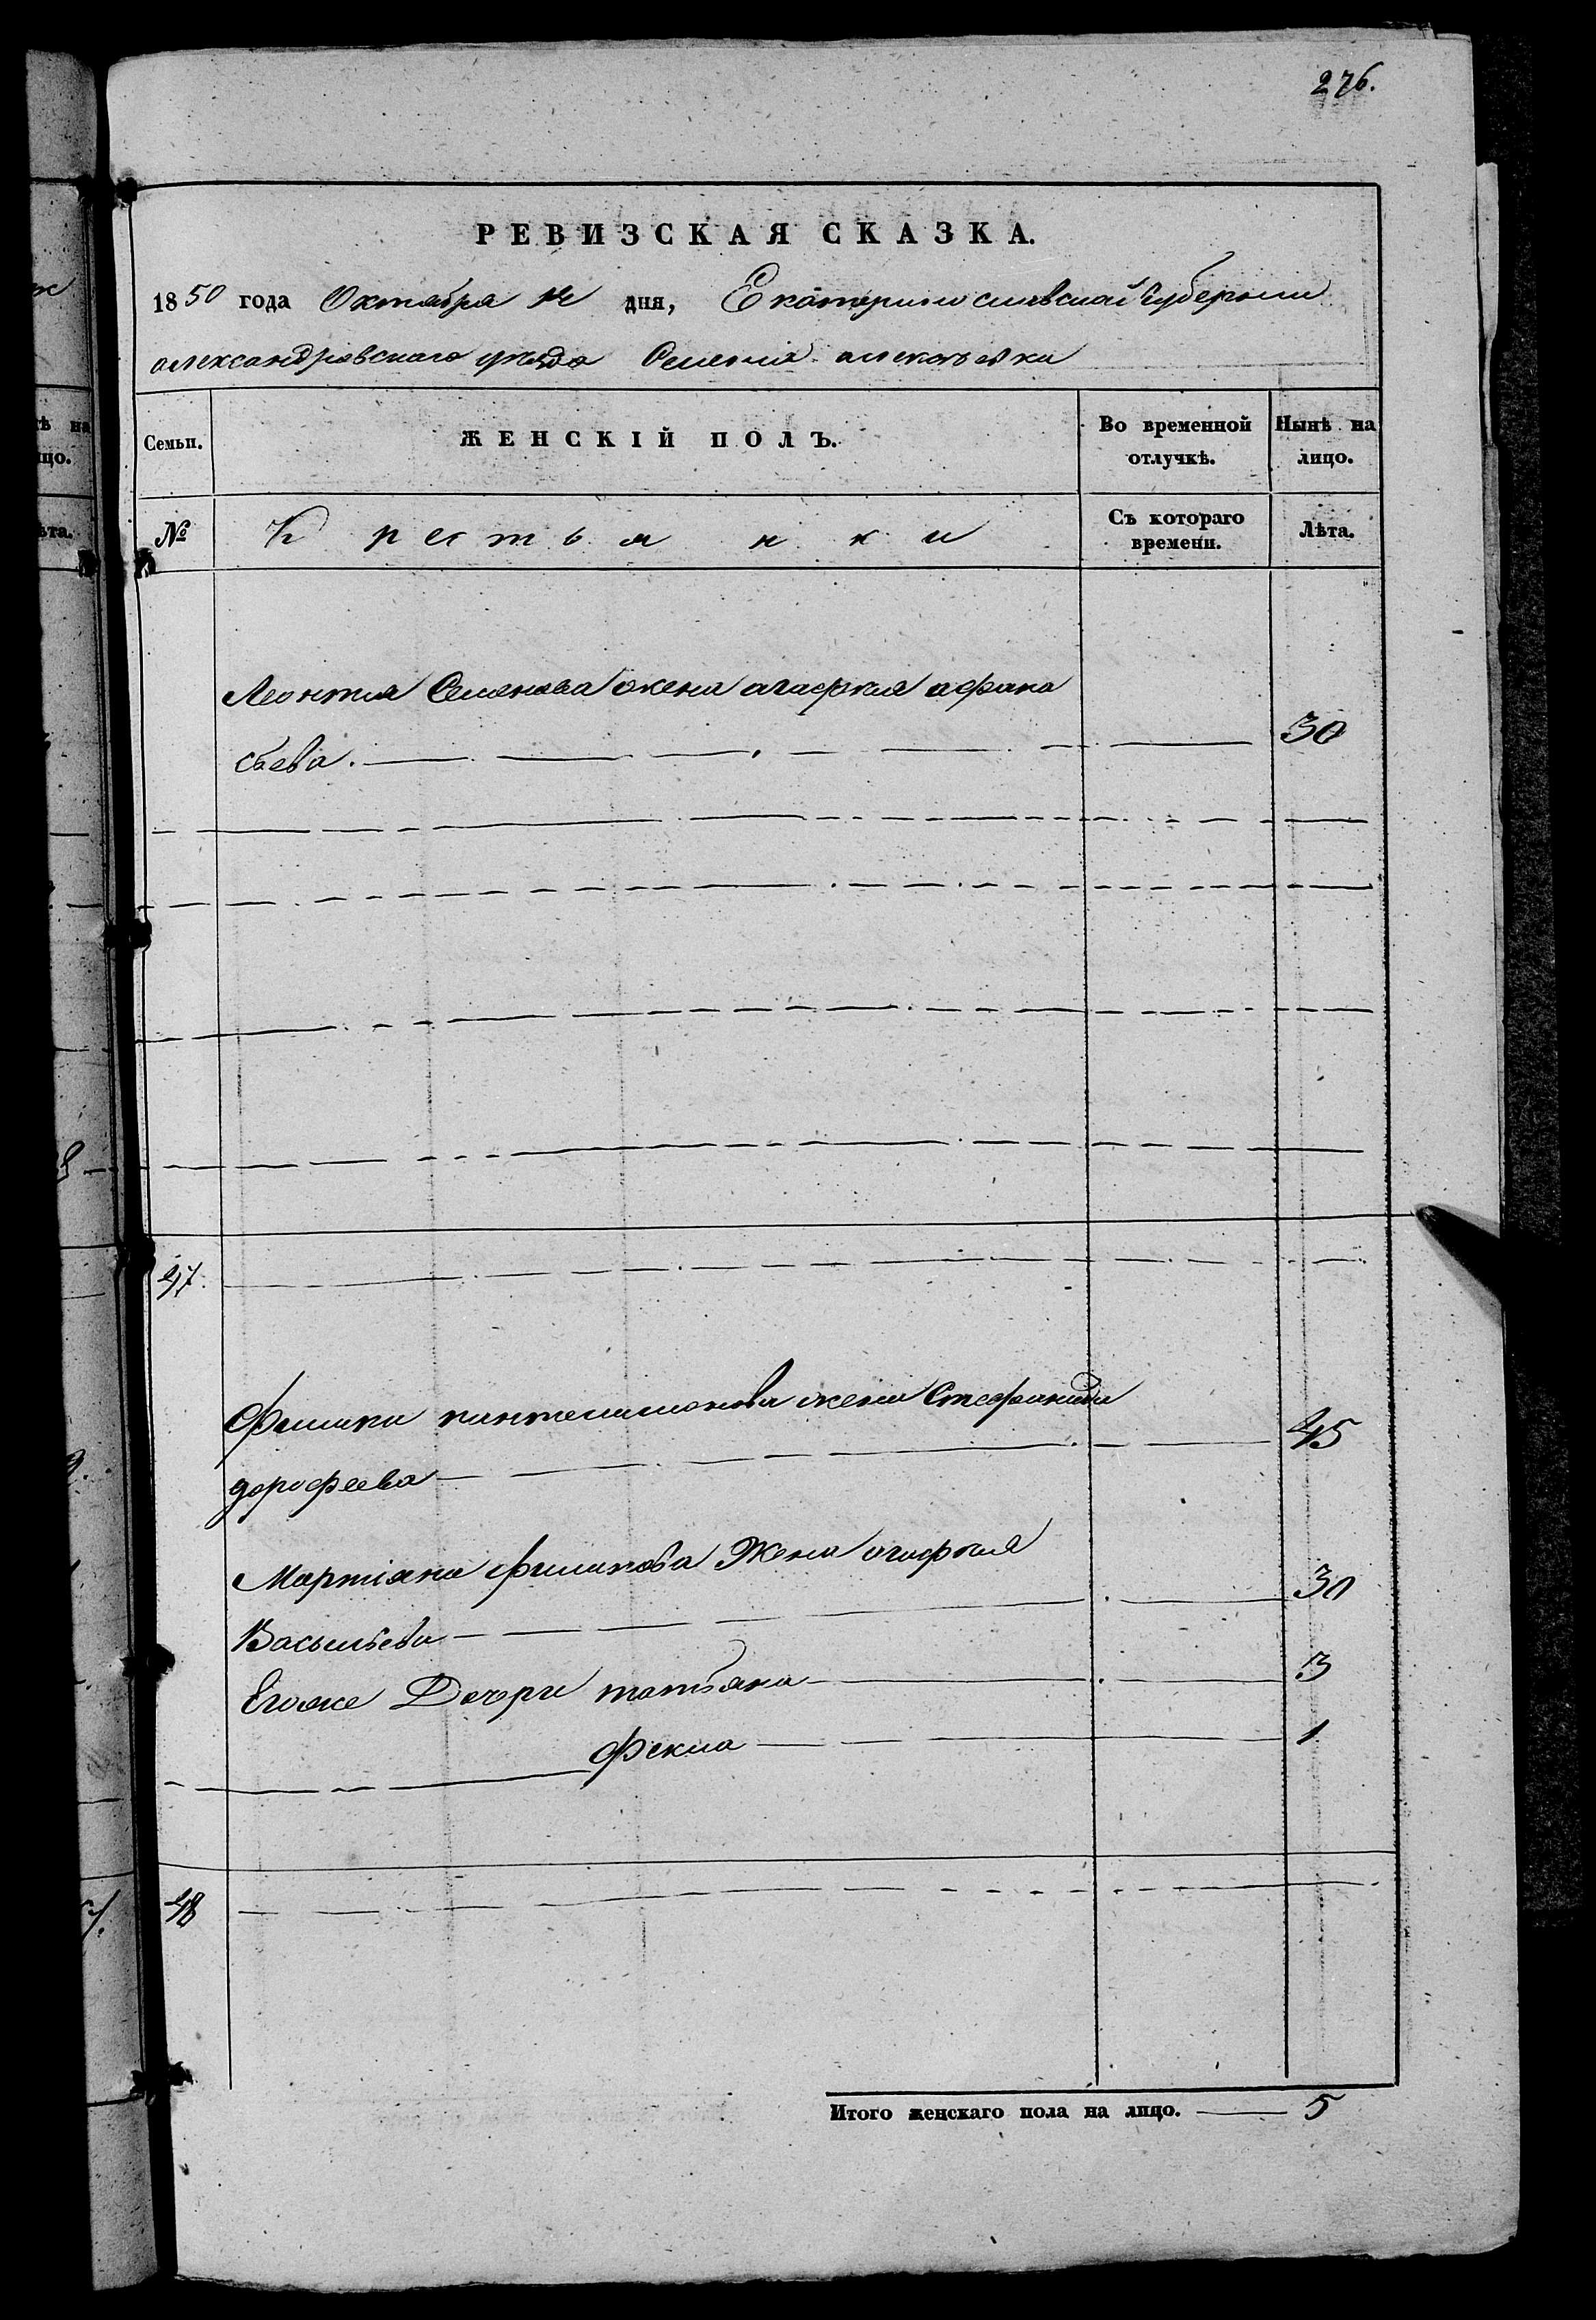 276.
РЕВИЗСКАЯ СКАЗКА.
1850 года Октября дня, Екатеринославской Губернии
александровскаго уезда Селения алексеевки
Семьи. ЖЕНСКІЙ ПОЛЪ. Во временной отлучкѣ. Нынѣ на лицо.
№ Крестьянки Съ котораго времени. Лѣта.
Леонтия Семенова жена агафия афана
сьева. 30
47.
Филипа пантелимонова жена Стефанида
дорофеева 45
Мартіана филипова Жена агафия
Васильева 30
Егоже Дочри татьяна 3
Фекла 1
48
Итого женскаго пола на лицо. 5